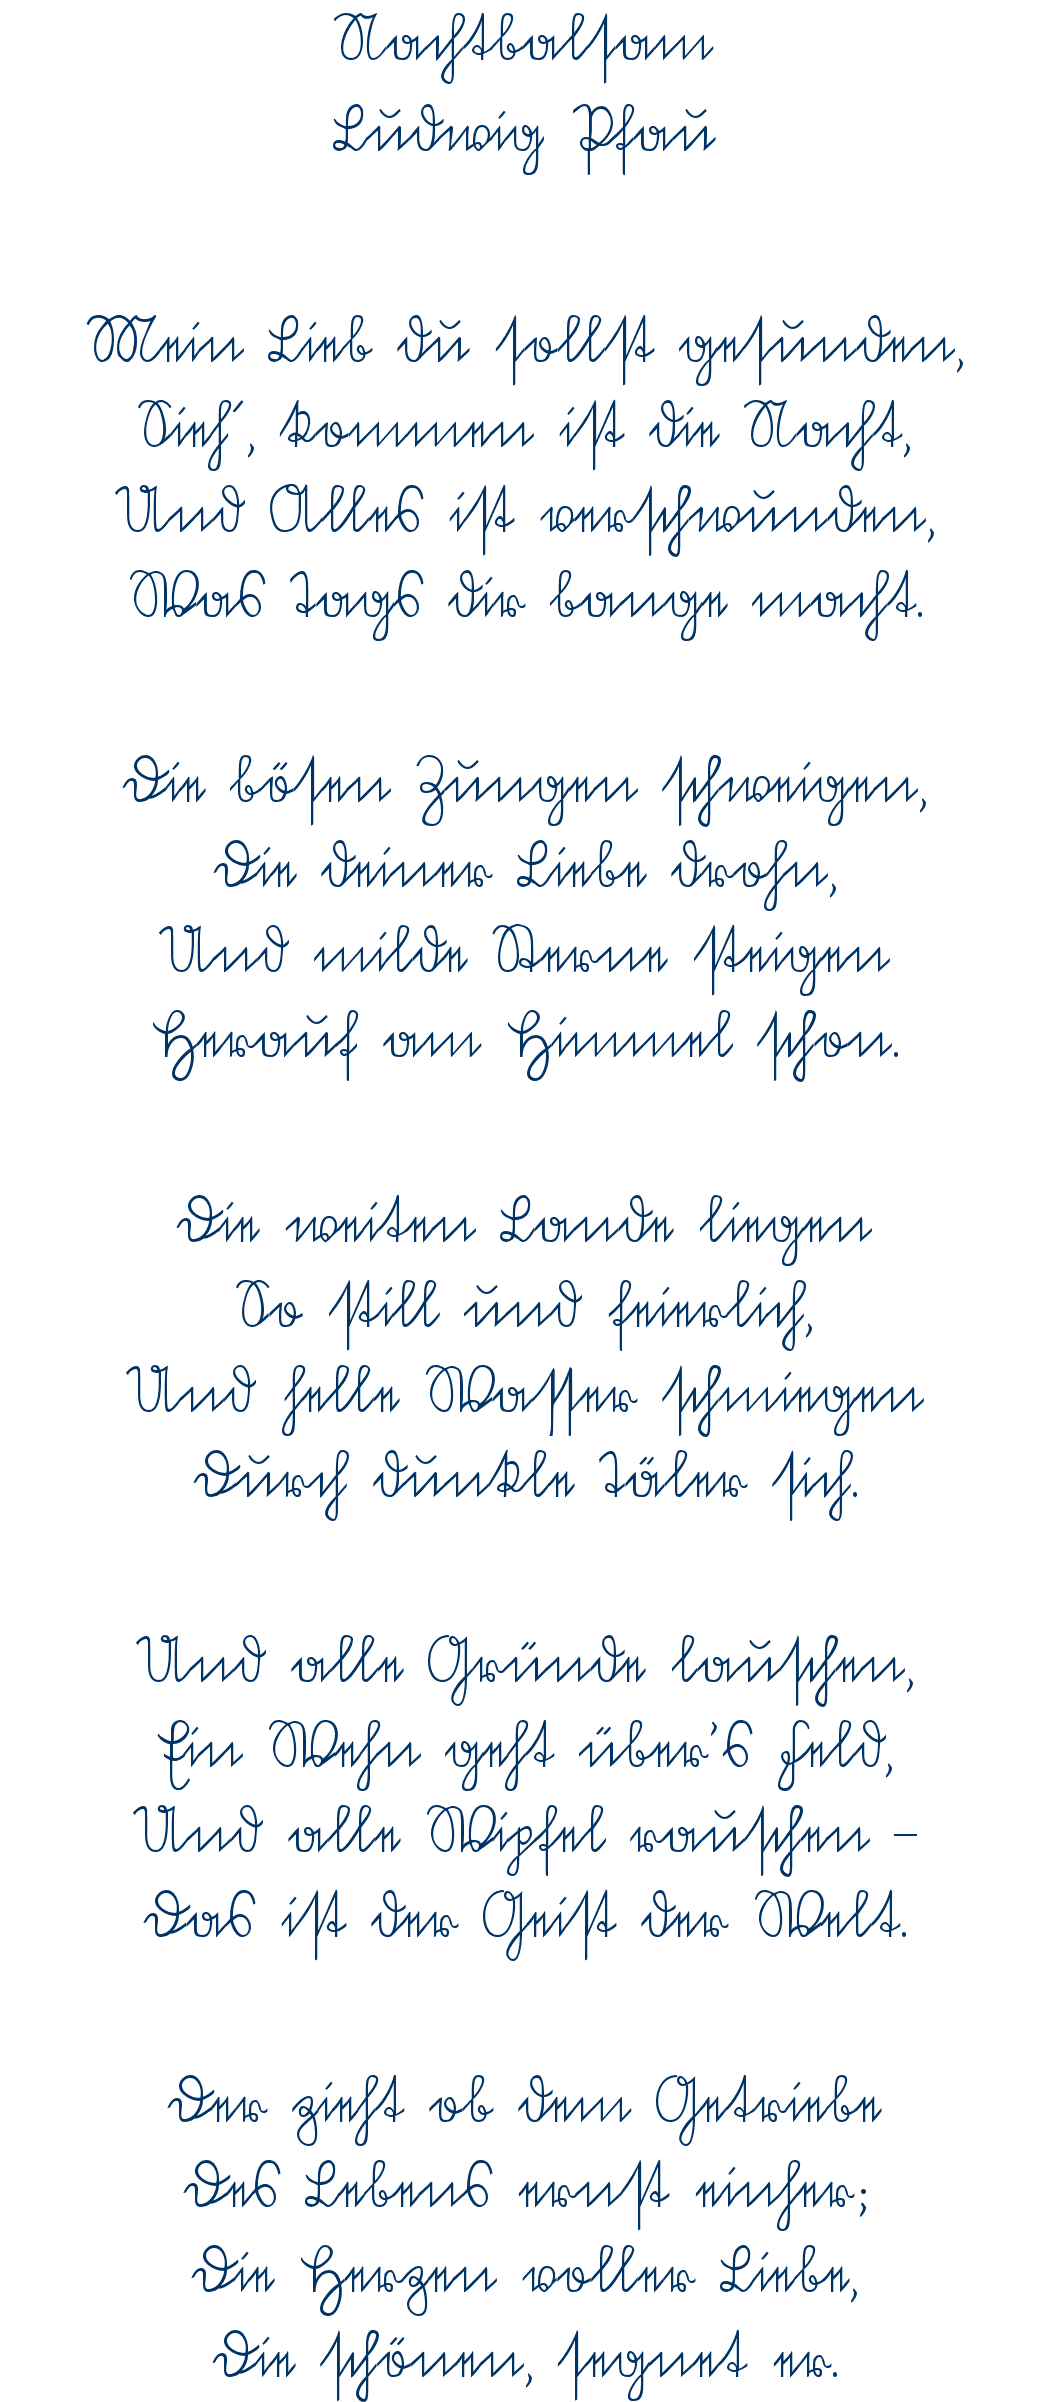 Nachtbalsam
Ludwig Pfau
Mein Lieb du sollst gesunden,
Sieh´, kommen ist die Nacht,
Und Alles ist verschwunden,
Was tags dir bange macht.
Die bösen Zungen schweigen,
Die deiner Liebe drohn,
Und milde Sterne steigen
Herauf am Himmel schon.
Die weiten Lande liegen
So still und feierlich,
Und helle Wasser schmiegen
Durch dunkle Täler sich.
Und alle Gründe lauschen,
Ein Wehn geht über's Feld,
Und alle Wipfel rauschen –
Das ist der Geist der Welt.
Der zieht ob dem Getriebe
Des Lebens ernst einher;
Die Herzen voller Liebe,
Die schönen, segnet er.